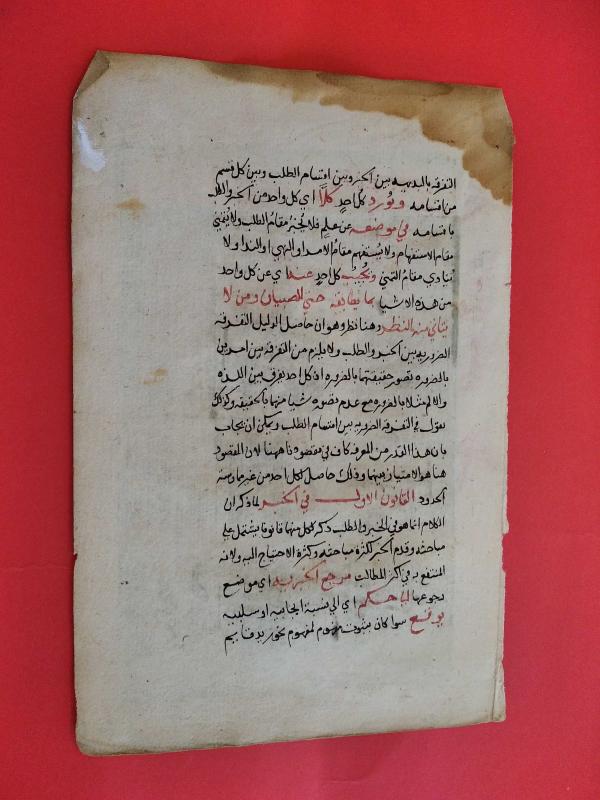 التفرقه بالبديهه بين الخبر وبين اقسام الطلب وبين كل قسم
من اقسامه ويورد كل احدٍ كلاً اي كل واحد من الخبر والطلب
باقسامه في موضعه عن علم فلا يخبر مقام الطلب ولا يتمني
مقام الاستفهام ولا يستفهم مقام الامر او النهي او الندا ولا
ينادي مقام التمني ويجيب كل احدٍ عنه اي عن كل واحد
من هذه الاشيا بما يطابقه حتي الصبيان ومن لا
يتاتي منه النظر وهنا نظر وهو ان حاصل الدليل التفرقه
الضروريه بين الخبر والطلب ولا يلزم من التفرقه بين امرين
بالضروره تصور حقيقتهما بالضروره اذ كل احد يفرق بين اللذه
والالم مثلا بالضروره مع عدم تصوره شيا منهما بالحقيقه وكذلك
نقول في التفرقه الضروريه بين اقسام الطلب ويمكن ان يجاب
بان هذا القدر من المعرفه كاف في مقصوده ناههنا لان المقصود
هنا هو الامتياز بينهما وذلك حاصل لكل احد من غير ممارسة
الحدود القانون الاول في الخبر لما ذكر ان
الكلام انما هو في الخبر والطلب ذكر لكل منهما قانونا يشتمل علي
مباحثه وقدم الخبر لكثرة مباحثه وكثرة الاحتياج اليه ولانه
المنتفع به في اكثر المطالب مرجع الخبريه اي موضع
رجوعها الي حكم اي الي نسبة ايجابيه او سلبيه
يوقع سوا كان بثبوت مفهوم لمفهوم نحو زيد قايم